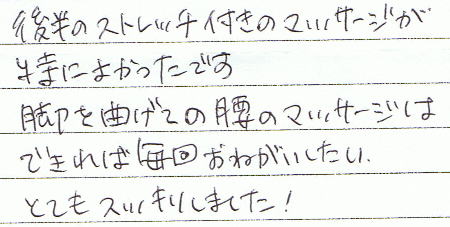 後半のストレッチ付きのマッサージが
特によかったです
脚を曲げての腰のマッサージは
できれば毎回おねがいしたい.
とてもスッキリしました!